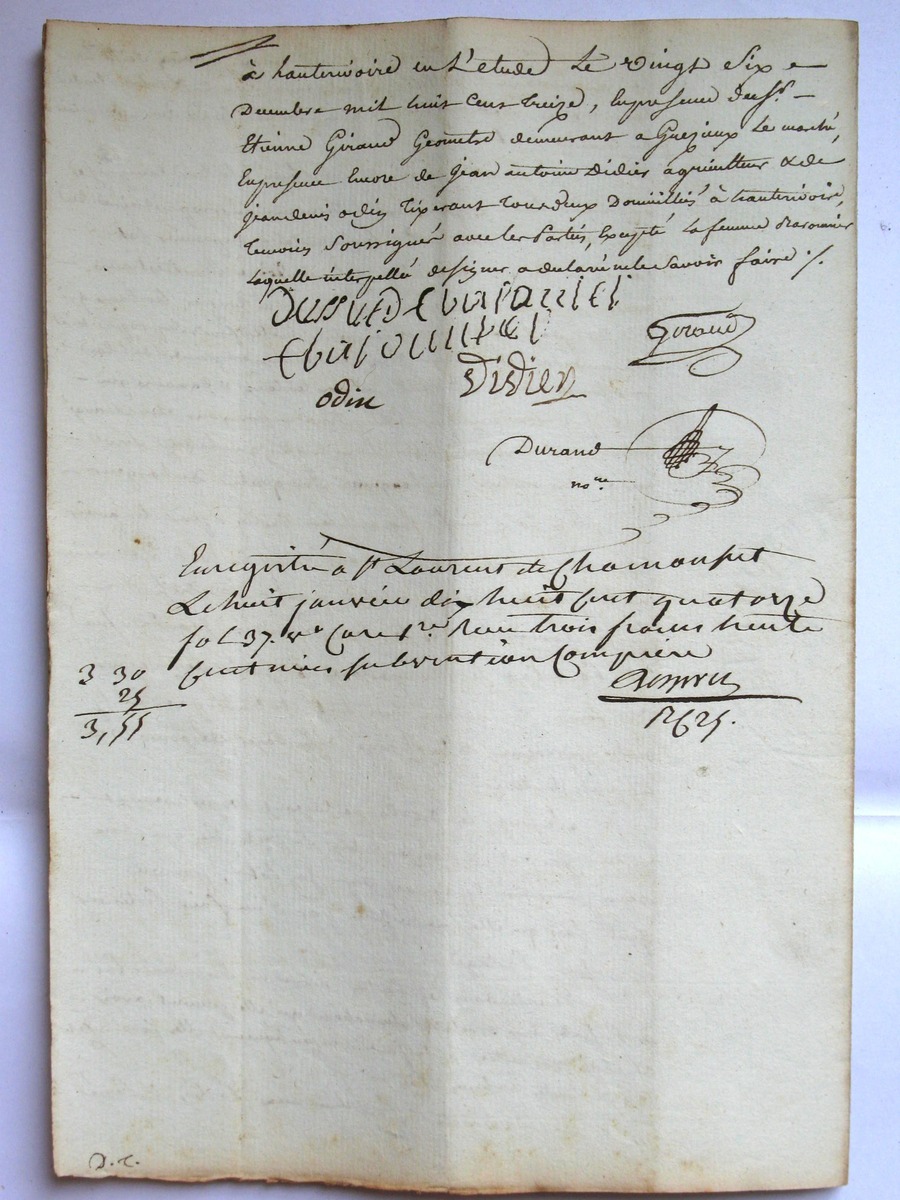 à hauterivoire en L'etude Le vingt Six
Decembre mil huit Cent treize, En presence du Sr.
Etienne Giraud Geometre demeurant a Grezieux Le marché,
En presence Encore de jean antoine Didier agriculteur & de
jean denis odin tixerant tous deux Domiciliés à hauterivoire,
temoins Soussignés avec les Parties, Excepté La femme
Laquelle interpellée de signer a declaré ne le Savoir faire ./.
Giraud
odin
Didier
Durand
nore
Enregistré a St Laurent de Chamousset
Le huit janvier dix huit Cent quatorze
fol 37. vo Case 1re Reçu trois francs trente
Centimes subvention Comprise
3 30
25
3,55
D. C.